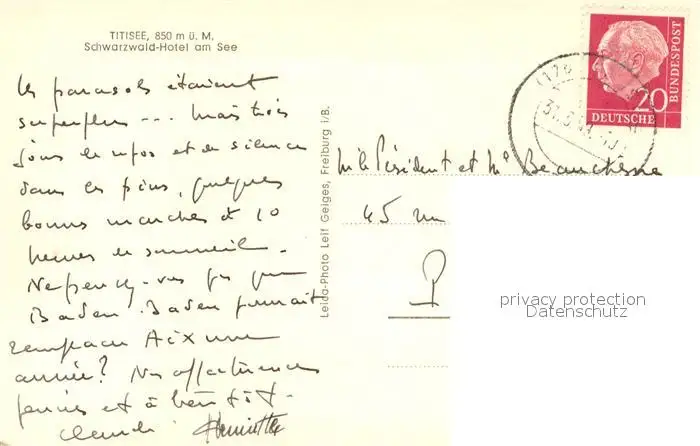 TITISEE, 850 m ü. M.
Schwarzwald-Hotel am See
les parasols étaient
superflus --- Mais trois
jours de repos et de silence
dans les pins, quelques
bonnes marches et 10
heures de sommeil.
Ne pensez-vous pas que
Baden-Baden pourrait
remplacer Aix une
année? Nos affectueuses
pensées et à bientôt.
Claude Henriette
Leida-Photo Leif Geiges, Freiburg i/B.
20
DEUTSCHE
BUNDESPOST
M. le Président et Me Beauchesne
45 rue
P
privacy protection
Datenschutz